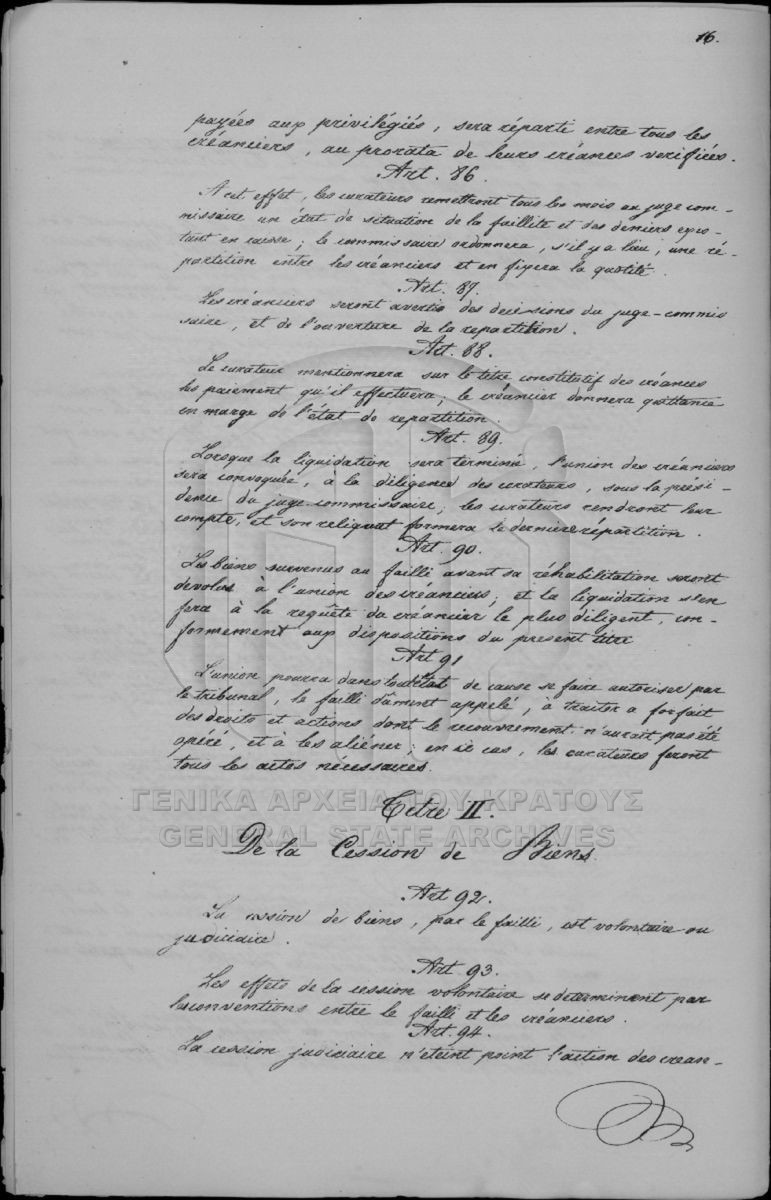 16.
payées aux privilégiés, sera réparti entre tous les
créanciers, au prorata de leurs créances verifiées.
Art. 86.
A cet effet, les curateurs remettront tous les mois au juge com-
missaire un état de situation de la faillite et des deniers exis-
tant en caisse; le commissaire ordonnera, s'il y a lieu, une ré-
partition entre les créanciers et en fixera la quotité.
Art. 87.
Les créanciers seront avertis des decisions du juge-commis
saire, et de l'ouverture de la repartition.
Art. 88.
Le curateur mentionnera sur le titre constitutif des créances
les paiement qu'il effectuera; le créancier donnera quittance
en marge de l'état de repartition.
Art. 89.
Lorsque la liquidation sera terminée, l'union des créanciers
sera convoquée, à la diligence des curateurs, sous la prési-
dence du juge-commissaire; les curateurs rendront leur
compte, et son reliquat formera la derniere répartition.
Art. 90.
Les biens survenus au failli avant sa réhabilitation seront
devolus à l'union des créanciers; et la liquidation s'en
fera à la requête du créancier le plus diligent, con-
formement aux dispositions du present titre
Art 91
L'union pourra dans tout état de cause se faire autoriser par
le tribunal, le failli dûment appelé, à traiter a forfait
des droits et actions dont le recouvrement n'aurait pas été
opéré, et à les aliéner; en ce cas, les curateurs feront
tous les actes nécessaires.
ΓΕΝΙΚΑ ΑΡΧΕΙΑ ΤΟΥ ΚΡΑΤΟΥΣ
Titre II.
GENERAL STATE ARCHIVES
De la Cession de Biens.
Art 92.
La cession de biens, par le failli, est volontaire ou
judiciaire.
Art. 93.
Les effets de la cession volontaire se determinent par
les conventions entre le failli et les créanciers.
Art. 94.
La cession judiciaire n'éteint point l'action des crean-